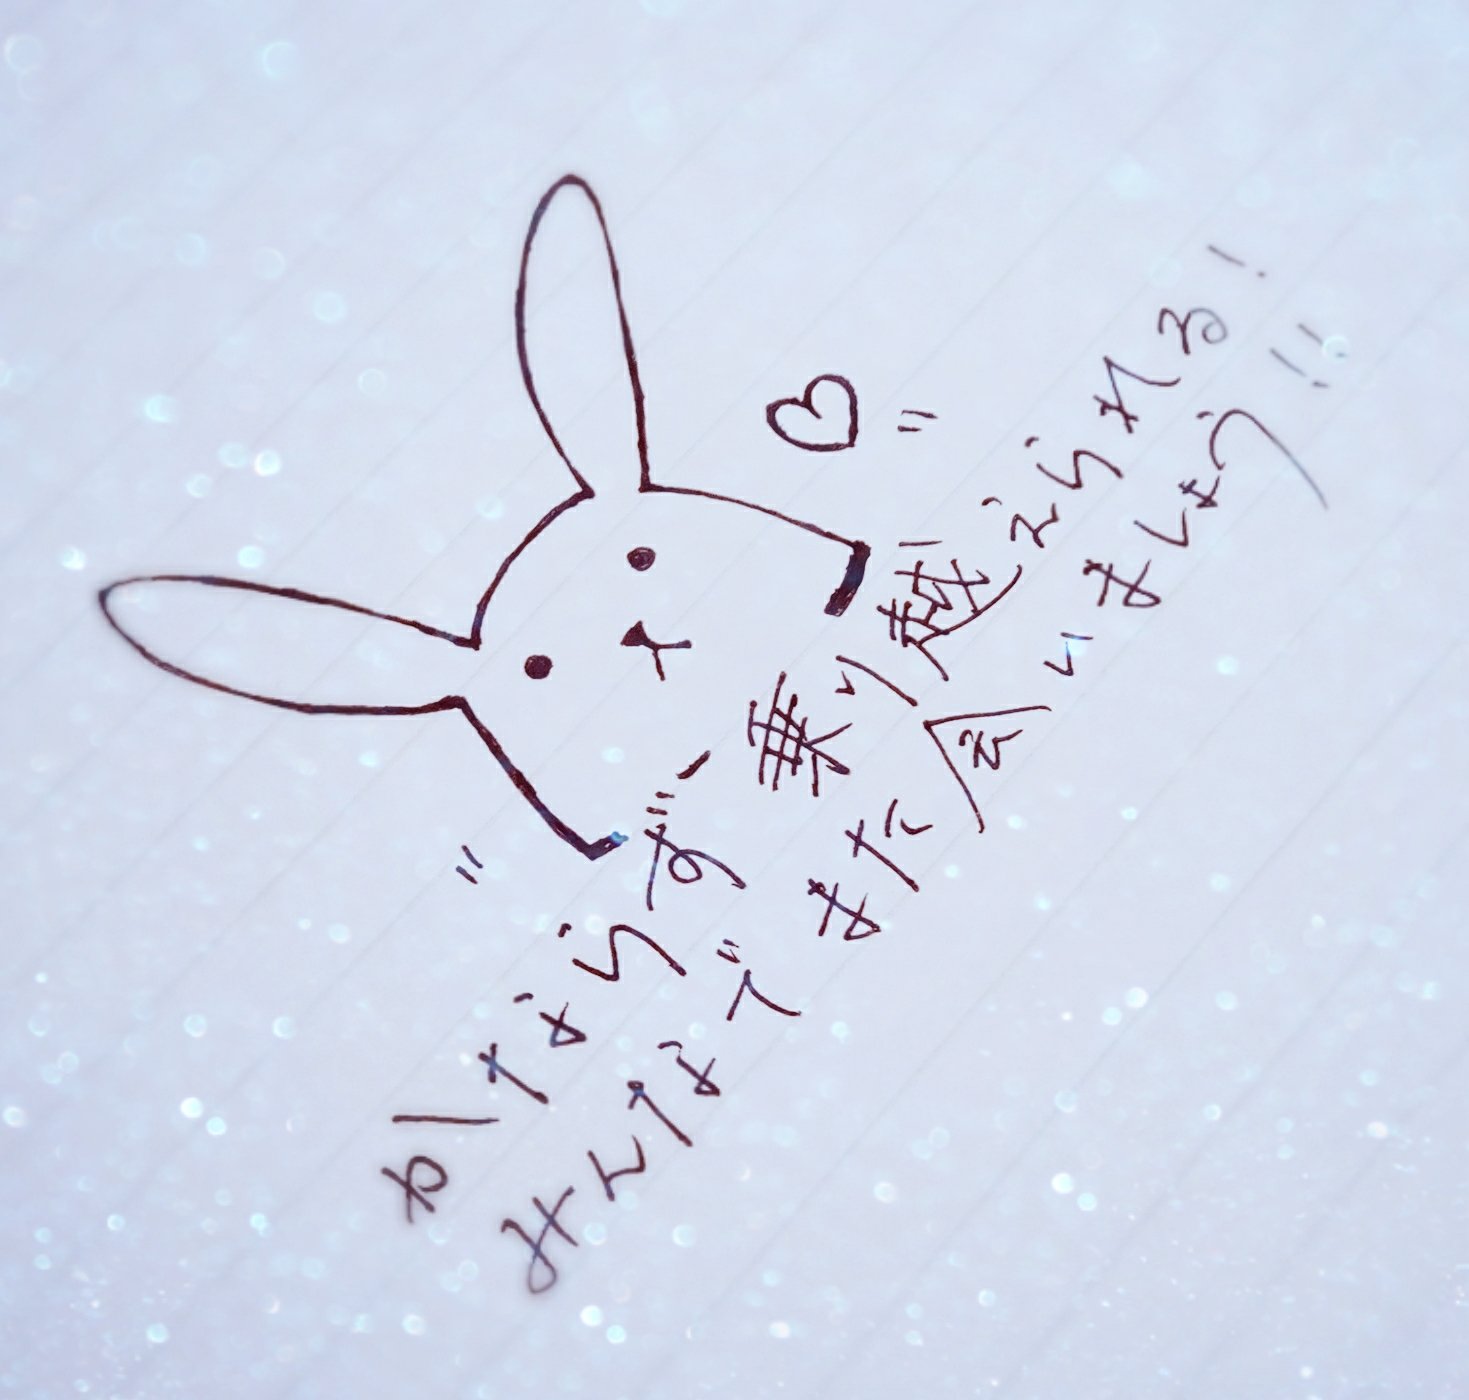 必ならず、乗り越えられる!
みんなでまた会いましょう!!